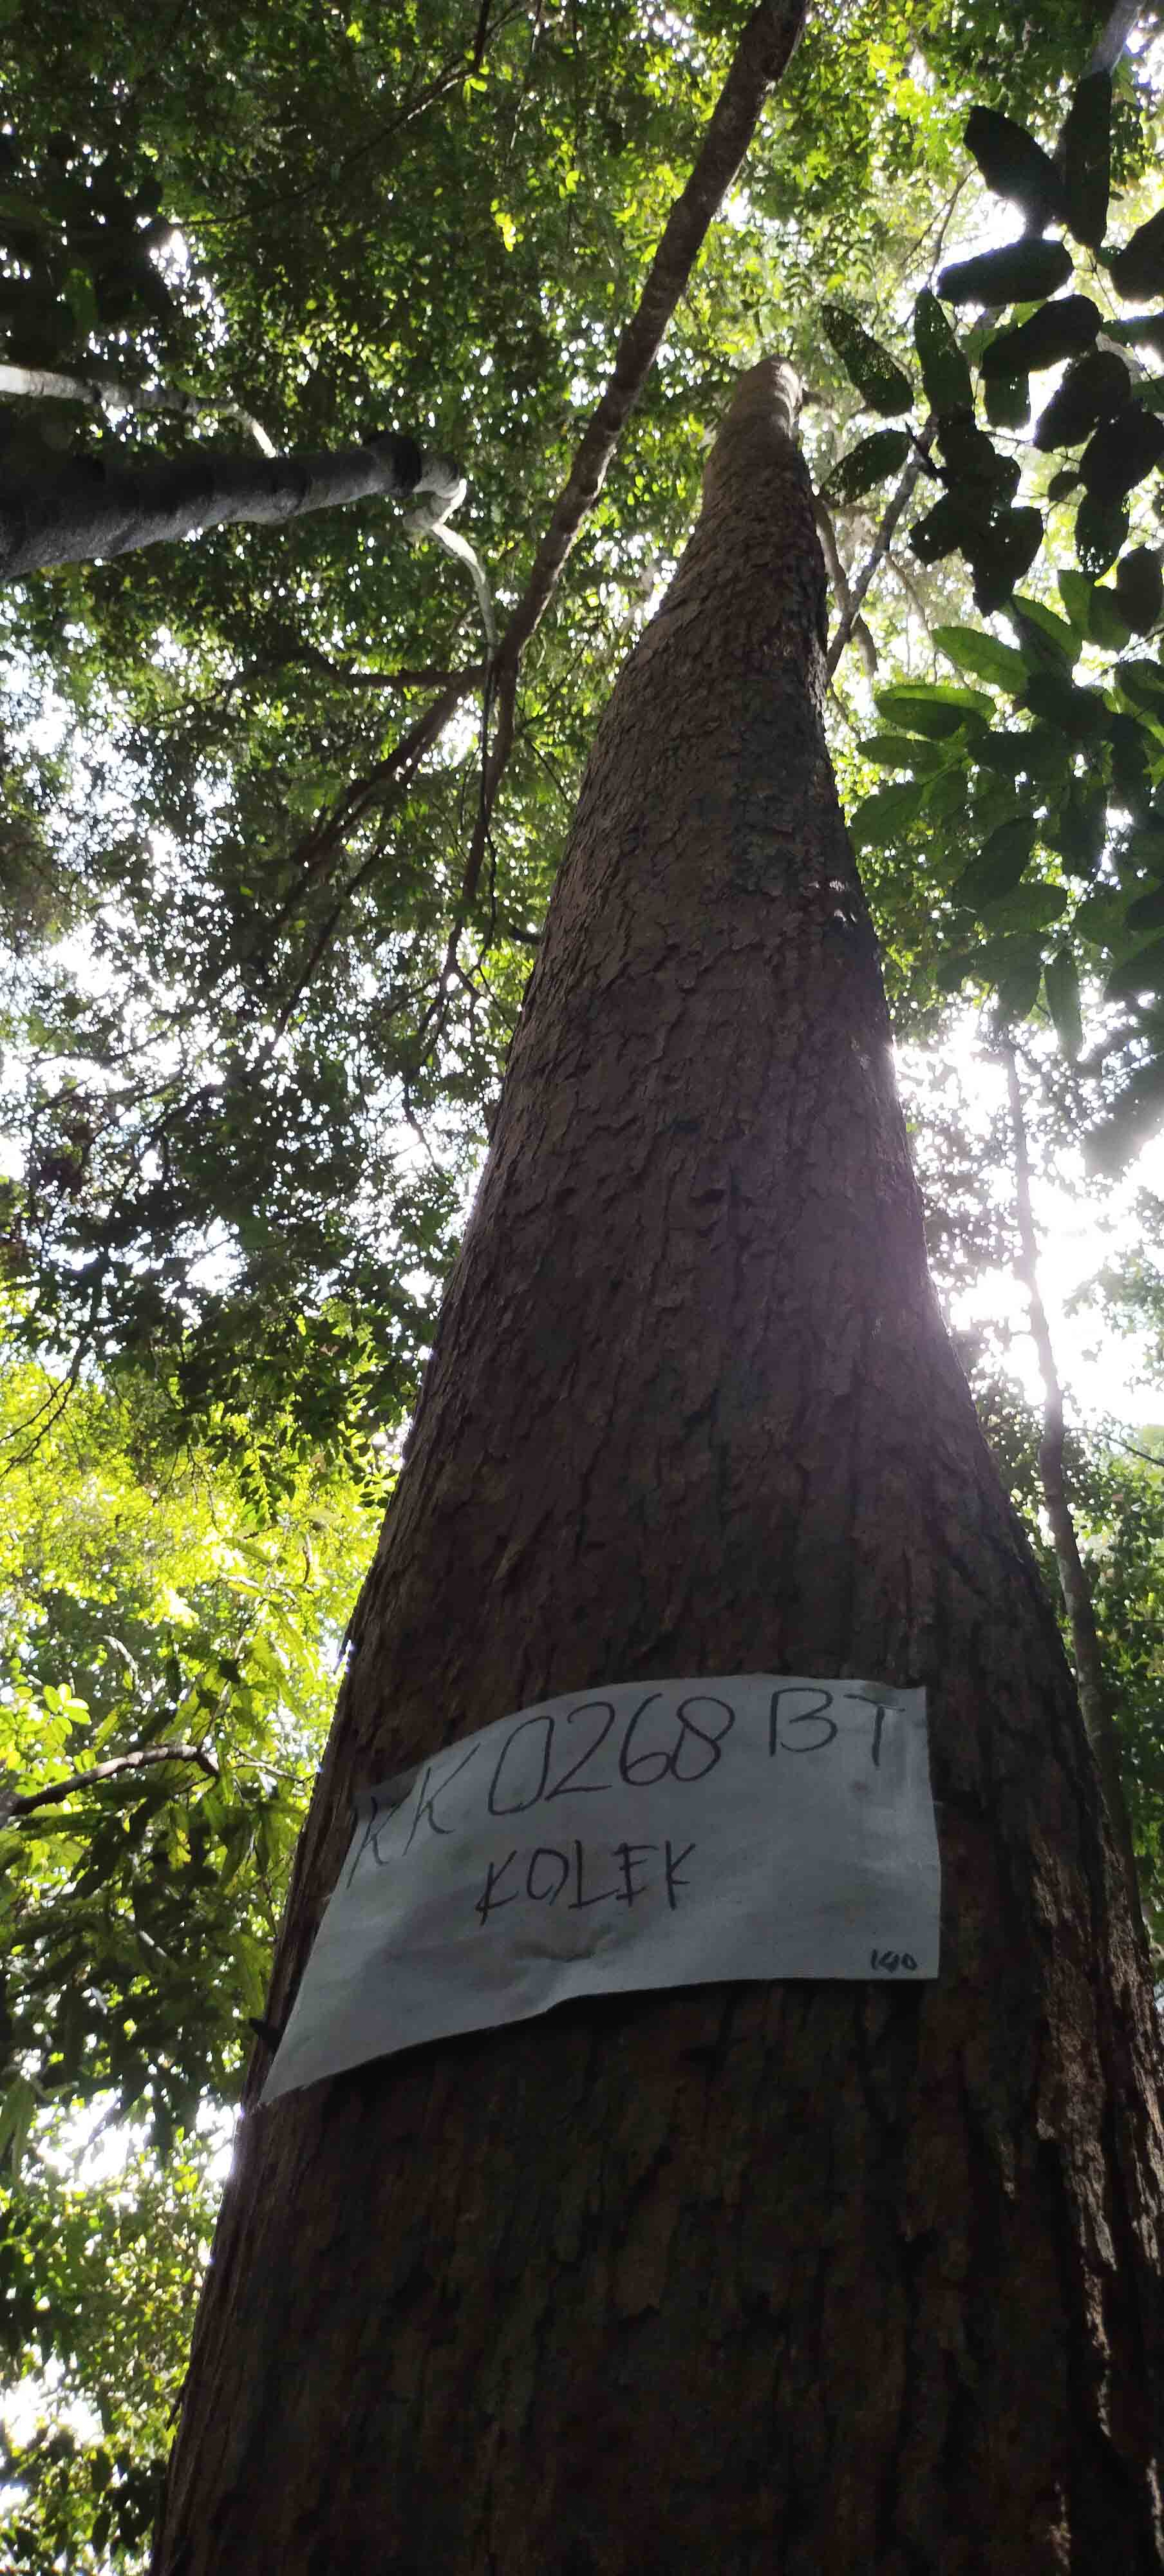 KK 0268 BT
KOLEK
140